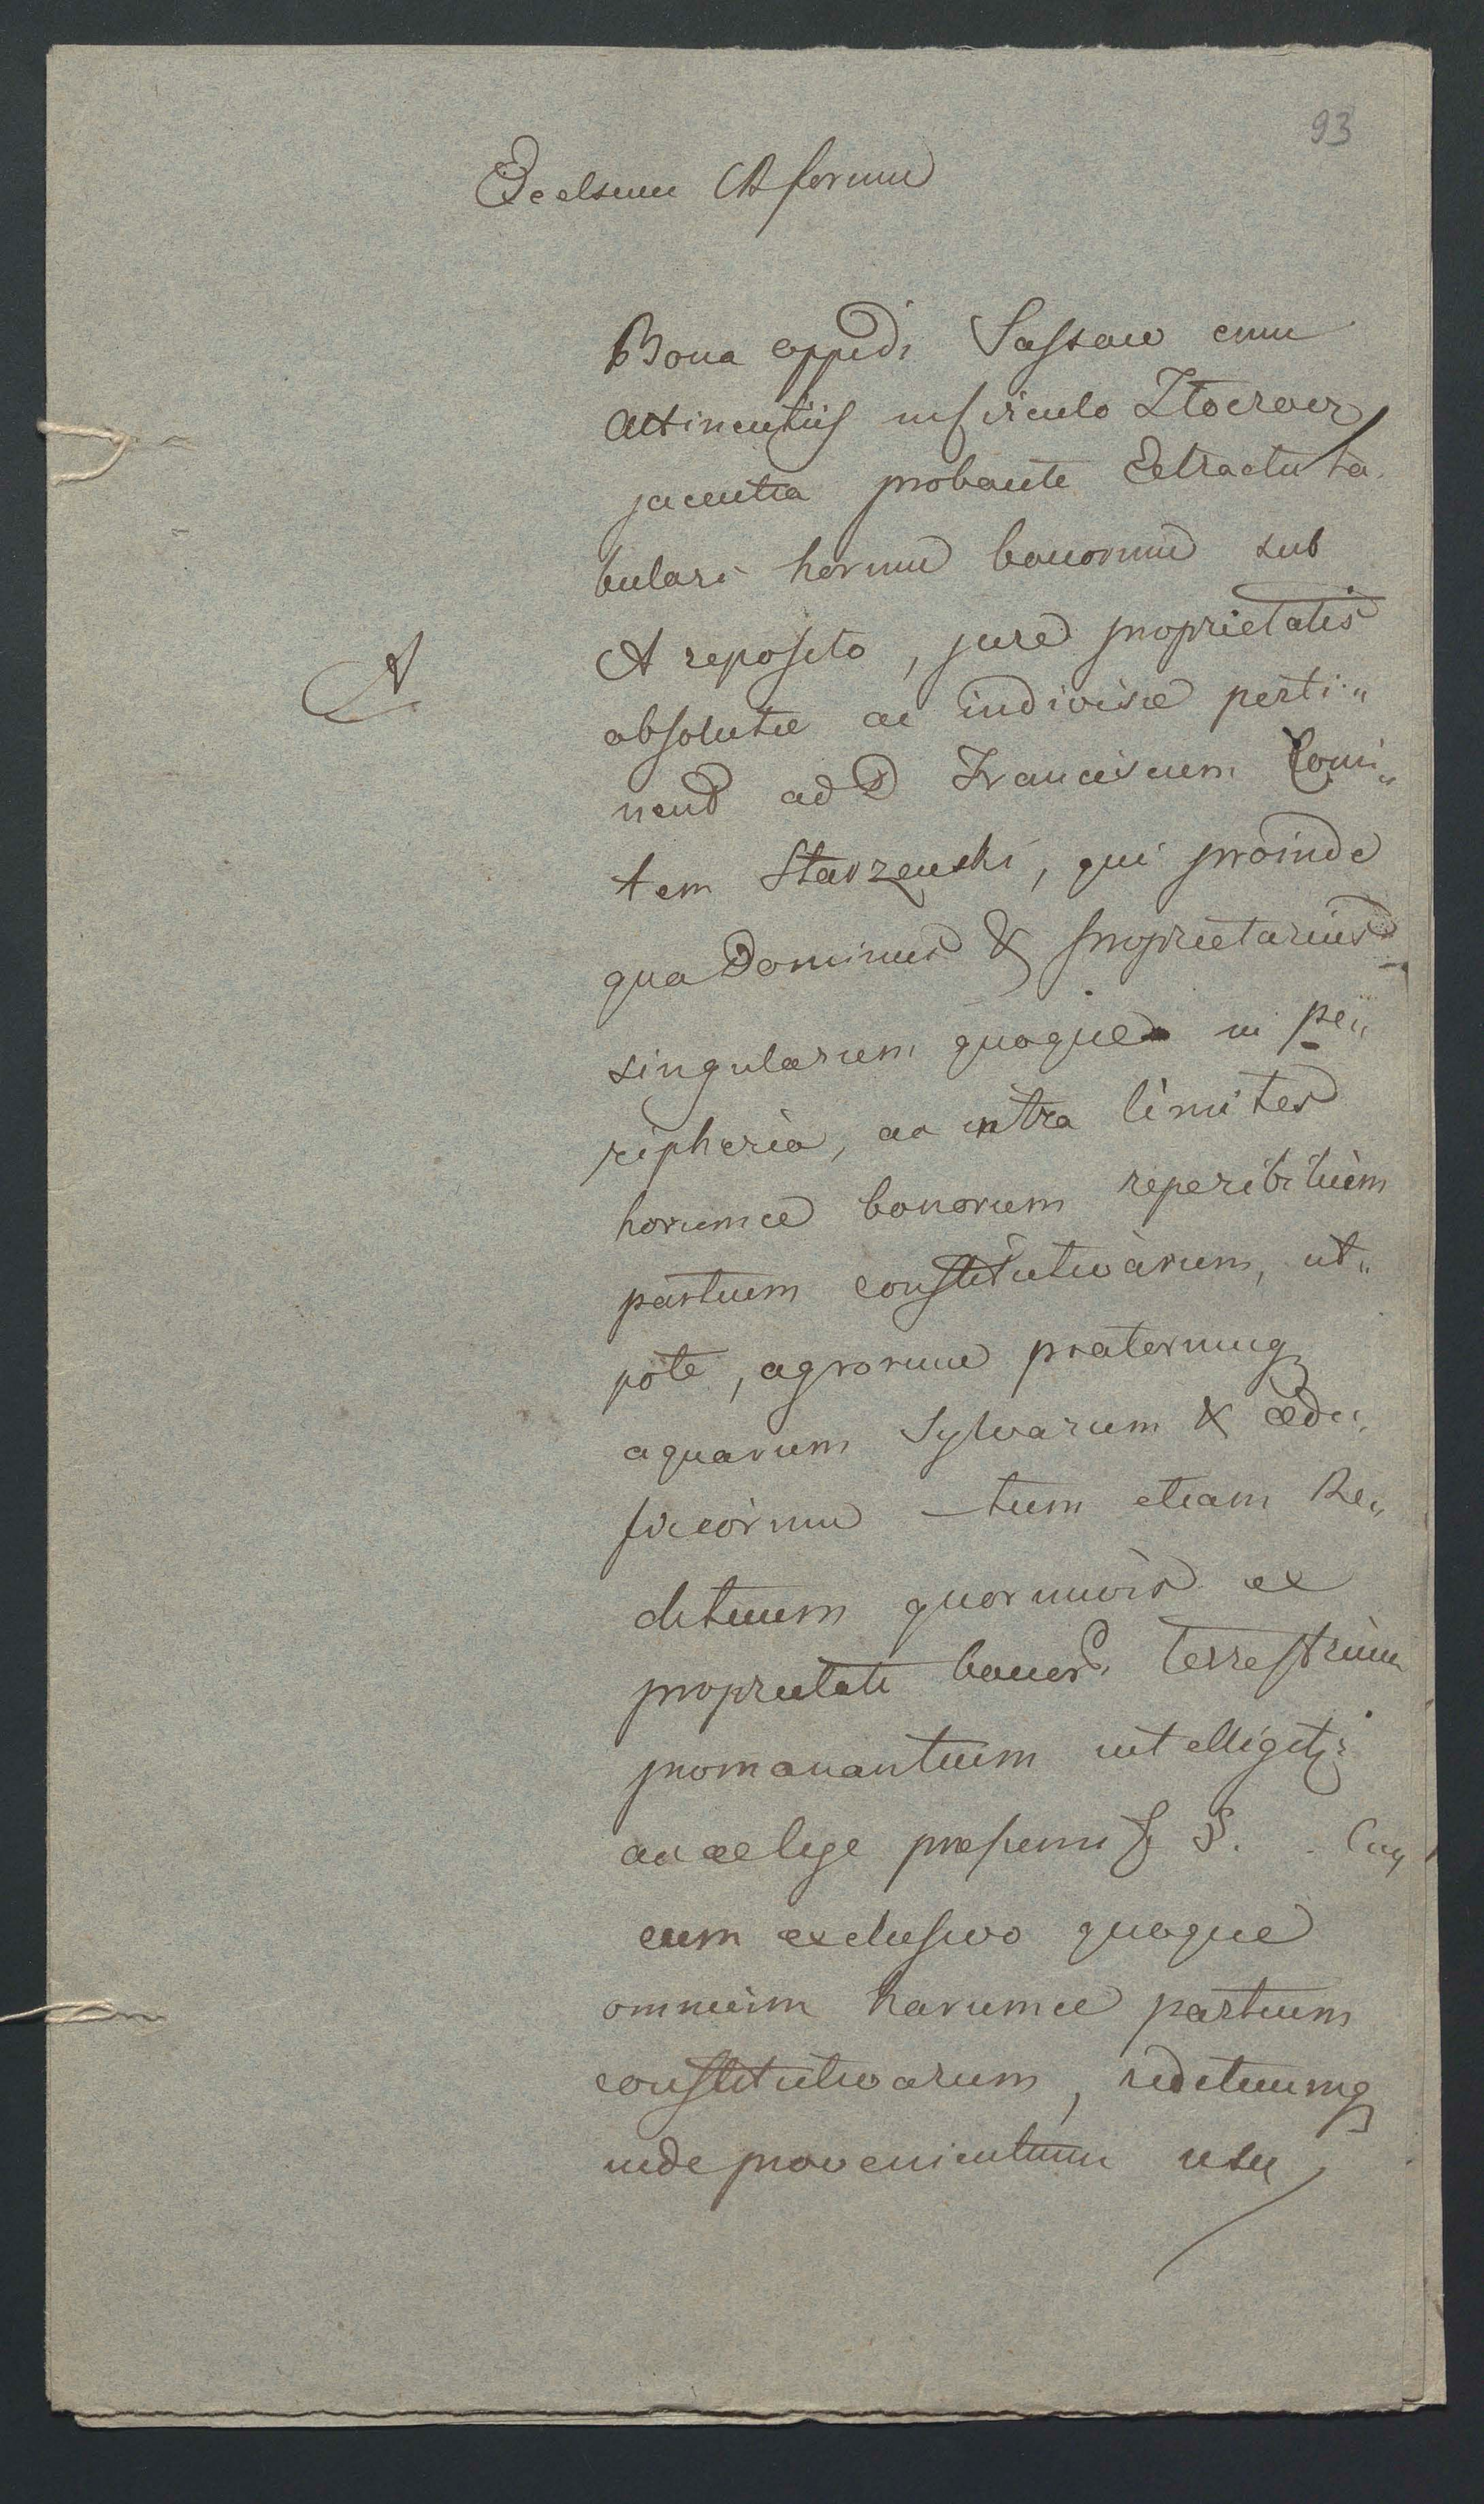 93
Excelsum C R forum
Bona oppidi Sassow cum
Attinentiis in Circulo Złoczover
jacentia probante Extractu ta
bulari horum bonorum sub
A
A reposito, jure proprietatis
absolutæ ac indivisæ perti„
nent ad D Franciscum Comi„
tem Starzenski, qui proinde
qua Dominus & proprietarius
singularum quoque in pe„
ripheria, ac intra limites
horumce bonorum reperibilium
partium constitutivarum, ut„
pote, agrorum pratorumq
aquarum Sylvarum & ædi„
ficiorum – tum etiam Re„
dituum quorumvis ex
proprietate bonor. terrestrium
promanantium intelligit:
ac ex lege § S.
cum exclusivo quoque
omnium harumce partium
constitutivarum, redituumq
inde provenientium usu